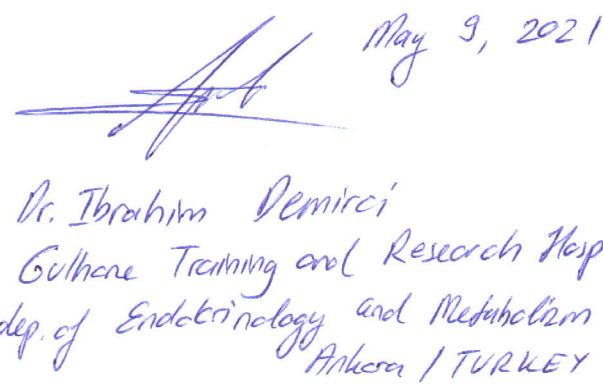 May 9, 2021
Dr. Ibrahim Demirci
Gulhane Training and Research Hosp
dep. of Endokrinology and Metabolizm
Ankara / TURKEY